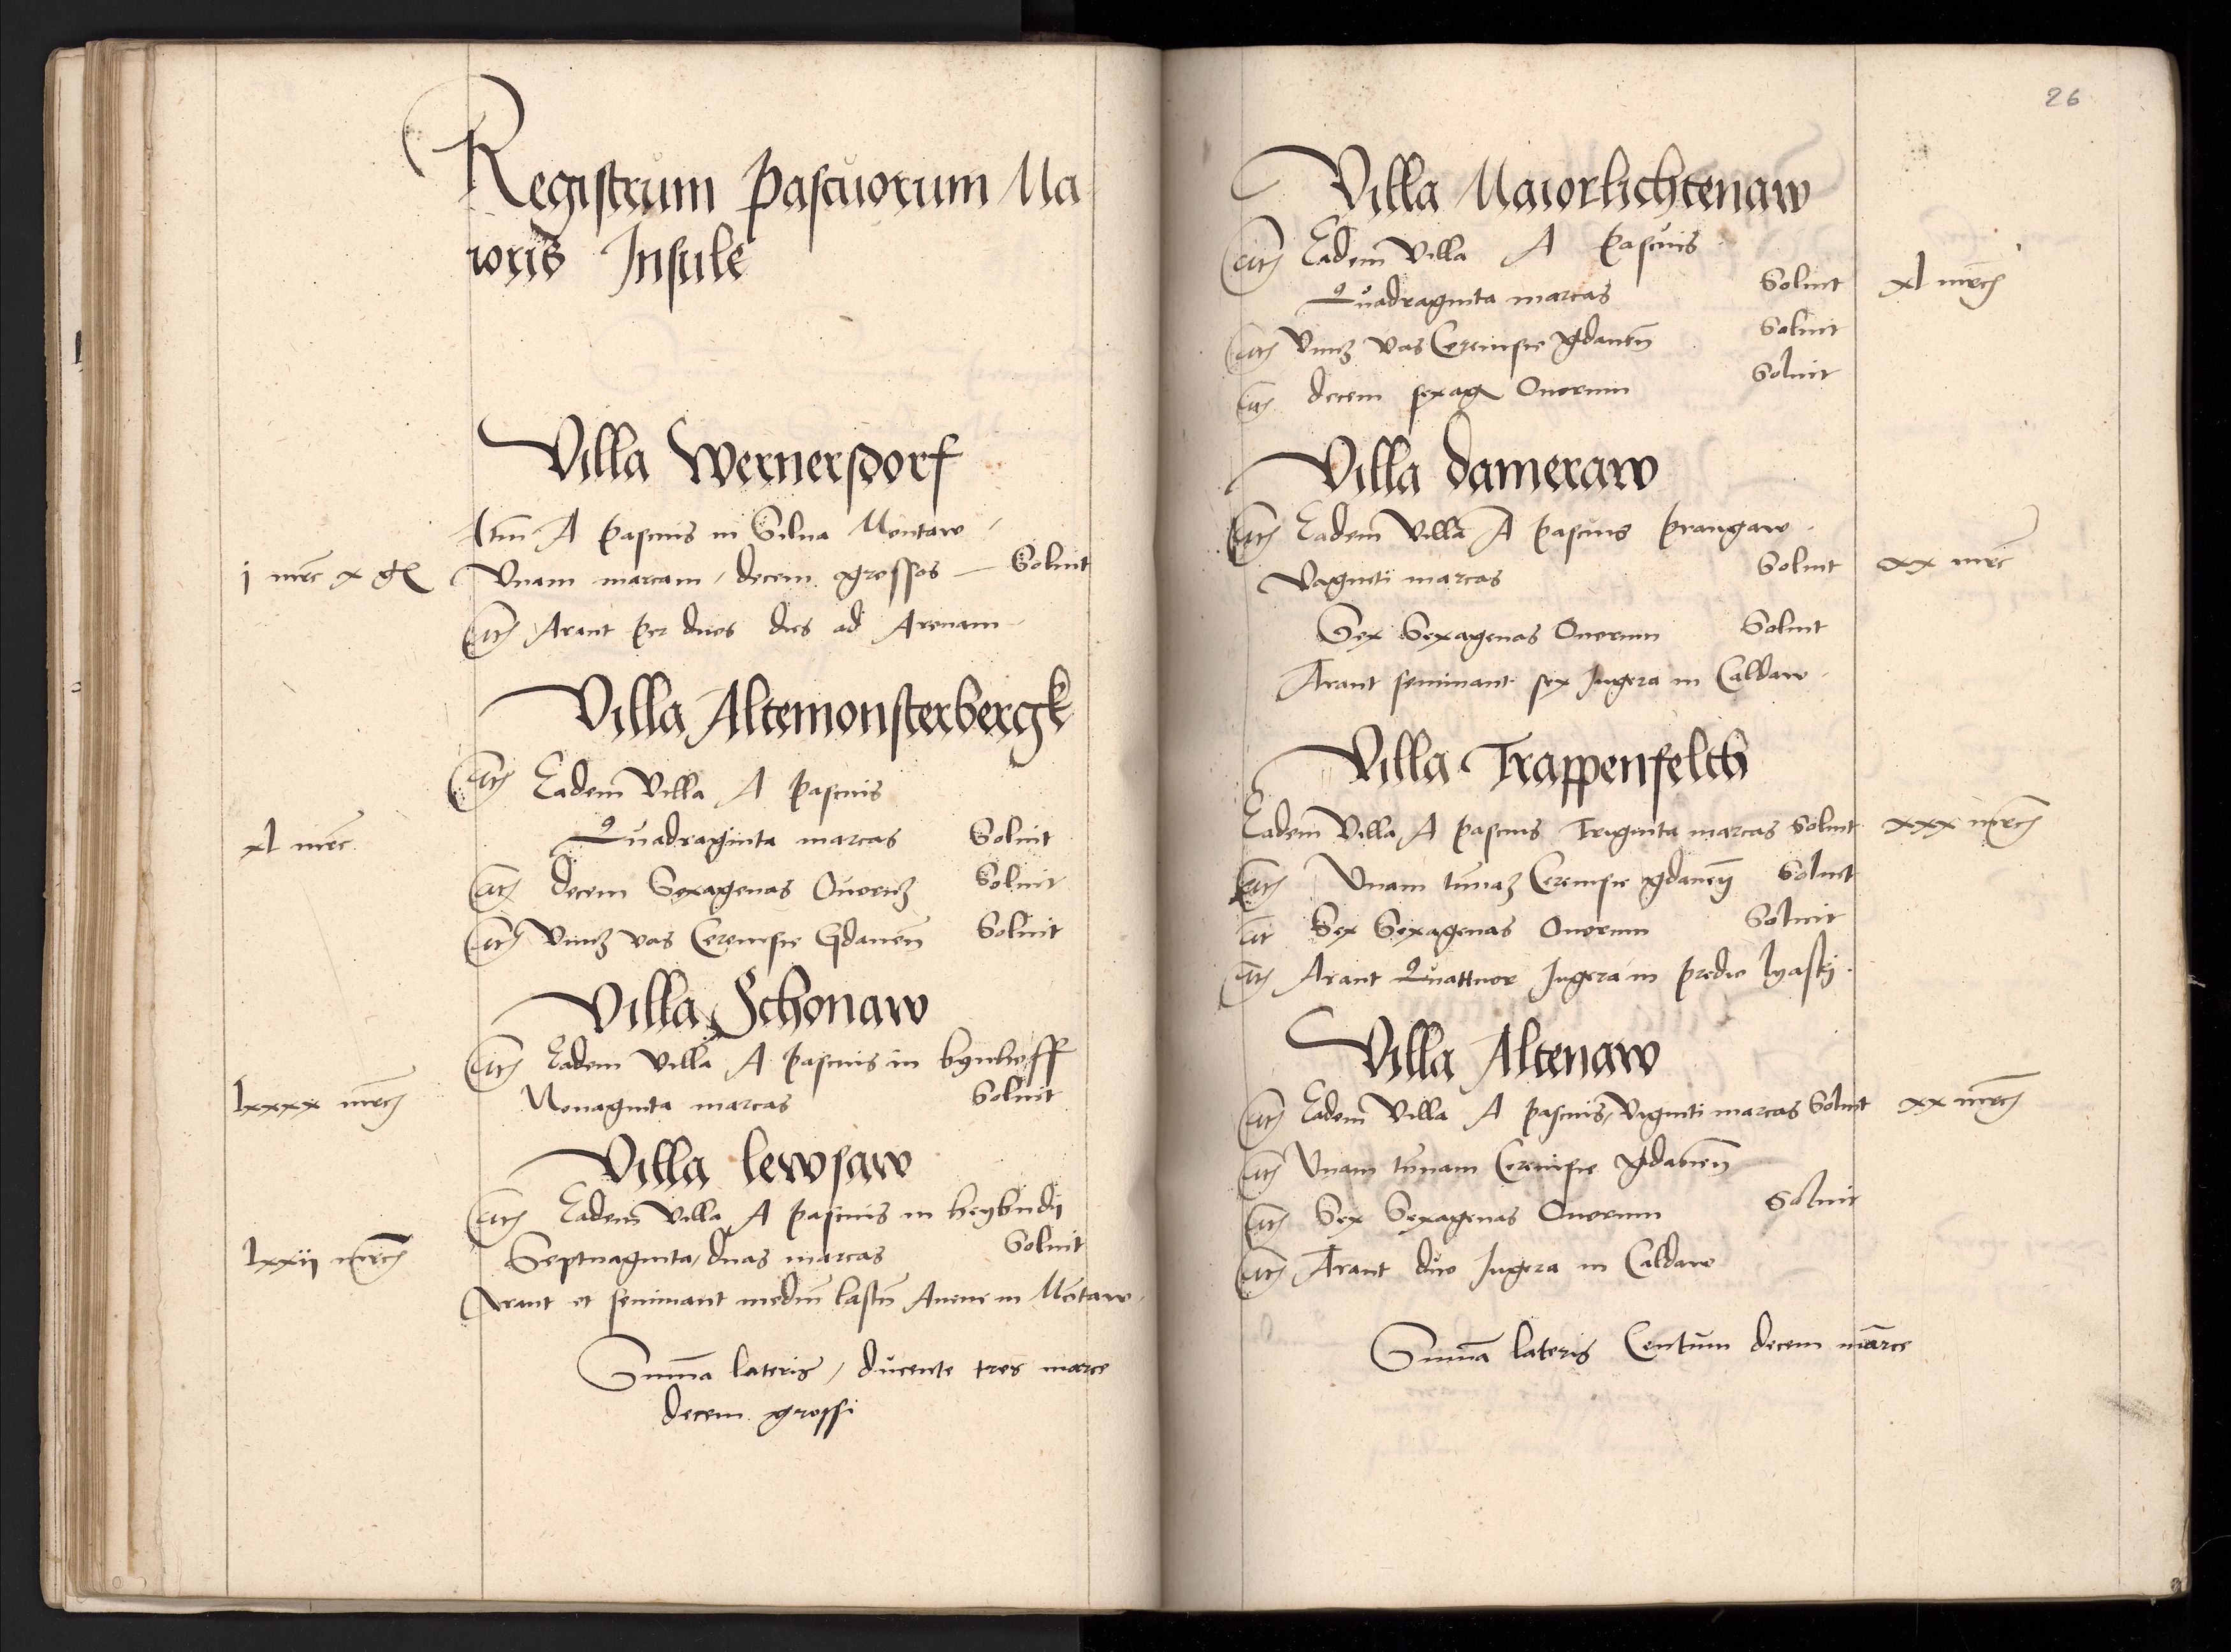 Registrum pascuorum Ma
ioris Insule
Villa Wernersdorf
Itm A pascuis in Silua Montaw
j mrc x gl Vnam marcam / decem grossos — Soluit
It Arant per duos dies ad Arenam
Villa Altemonsterbergk
It Eadem Villa A pascuis
xl mrc Quadraginta marcas Soluit
It decem Sexagenas Ouoruz Soluit
It Vnuz vas Cereuisie Gdanen Soluit
Villa Schonaw
It Eadem villa A pascuis in kynhoff
lxxxx mrc Nonaginta marcas Soluit
Villa lewsaw
It Eadem Villa A pascuis in
lxxij mrc Septuaginta / duas marcas Soluit
Arant et seminant mediu lastu Auene in Motaw
Summa lateris / ducente tres marce
decem grossi
26
Villa Maiorlichtenaw
It Eadem Villa A pascuis
Quadraginta marcas Soluit xl mrc
It Vnuz vas Cereuisie gdanen Soluit
It decem sexag Ouorum Soluit
Villa dameraw
It Eadem Villa A pascuis prangaw
Vaginti marcas Soluit xx mrc
Sex Sexagenas Ouorum Soluit
Arant seminant sex Jugera in Caldaw
Villa Trappenfelth
Eadem Villa A pascuis Triginta marcas Soluit xxx mrc
It Vnam tunaz Cereuisie gdanen Soluit
It Sex Sexagenas Ouorum Soluit
It Arant Quattuor Jugera in predio lyasky
Villa Altenaw
It Eadem Villa A pascuis / Viginti marcas Soluit xx mrc
It Vnam tunam Cereuisie gdanen
It Sex Sexagenas Ouorum Soluit
It Arant duo Jugera in Caldaw
Summa lateris Centum decem marce